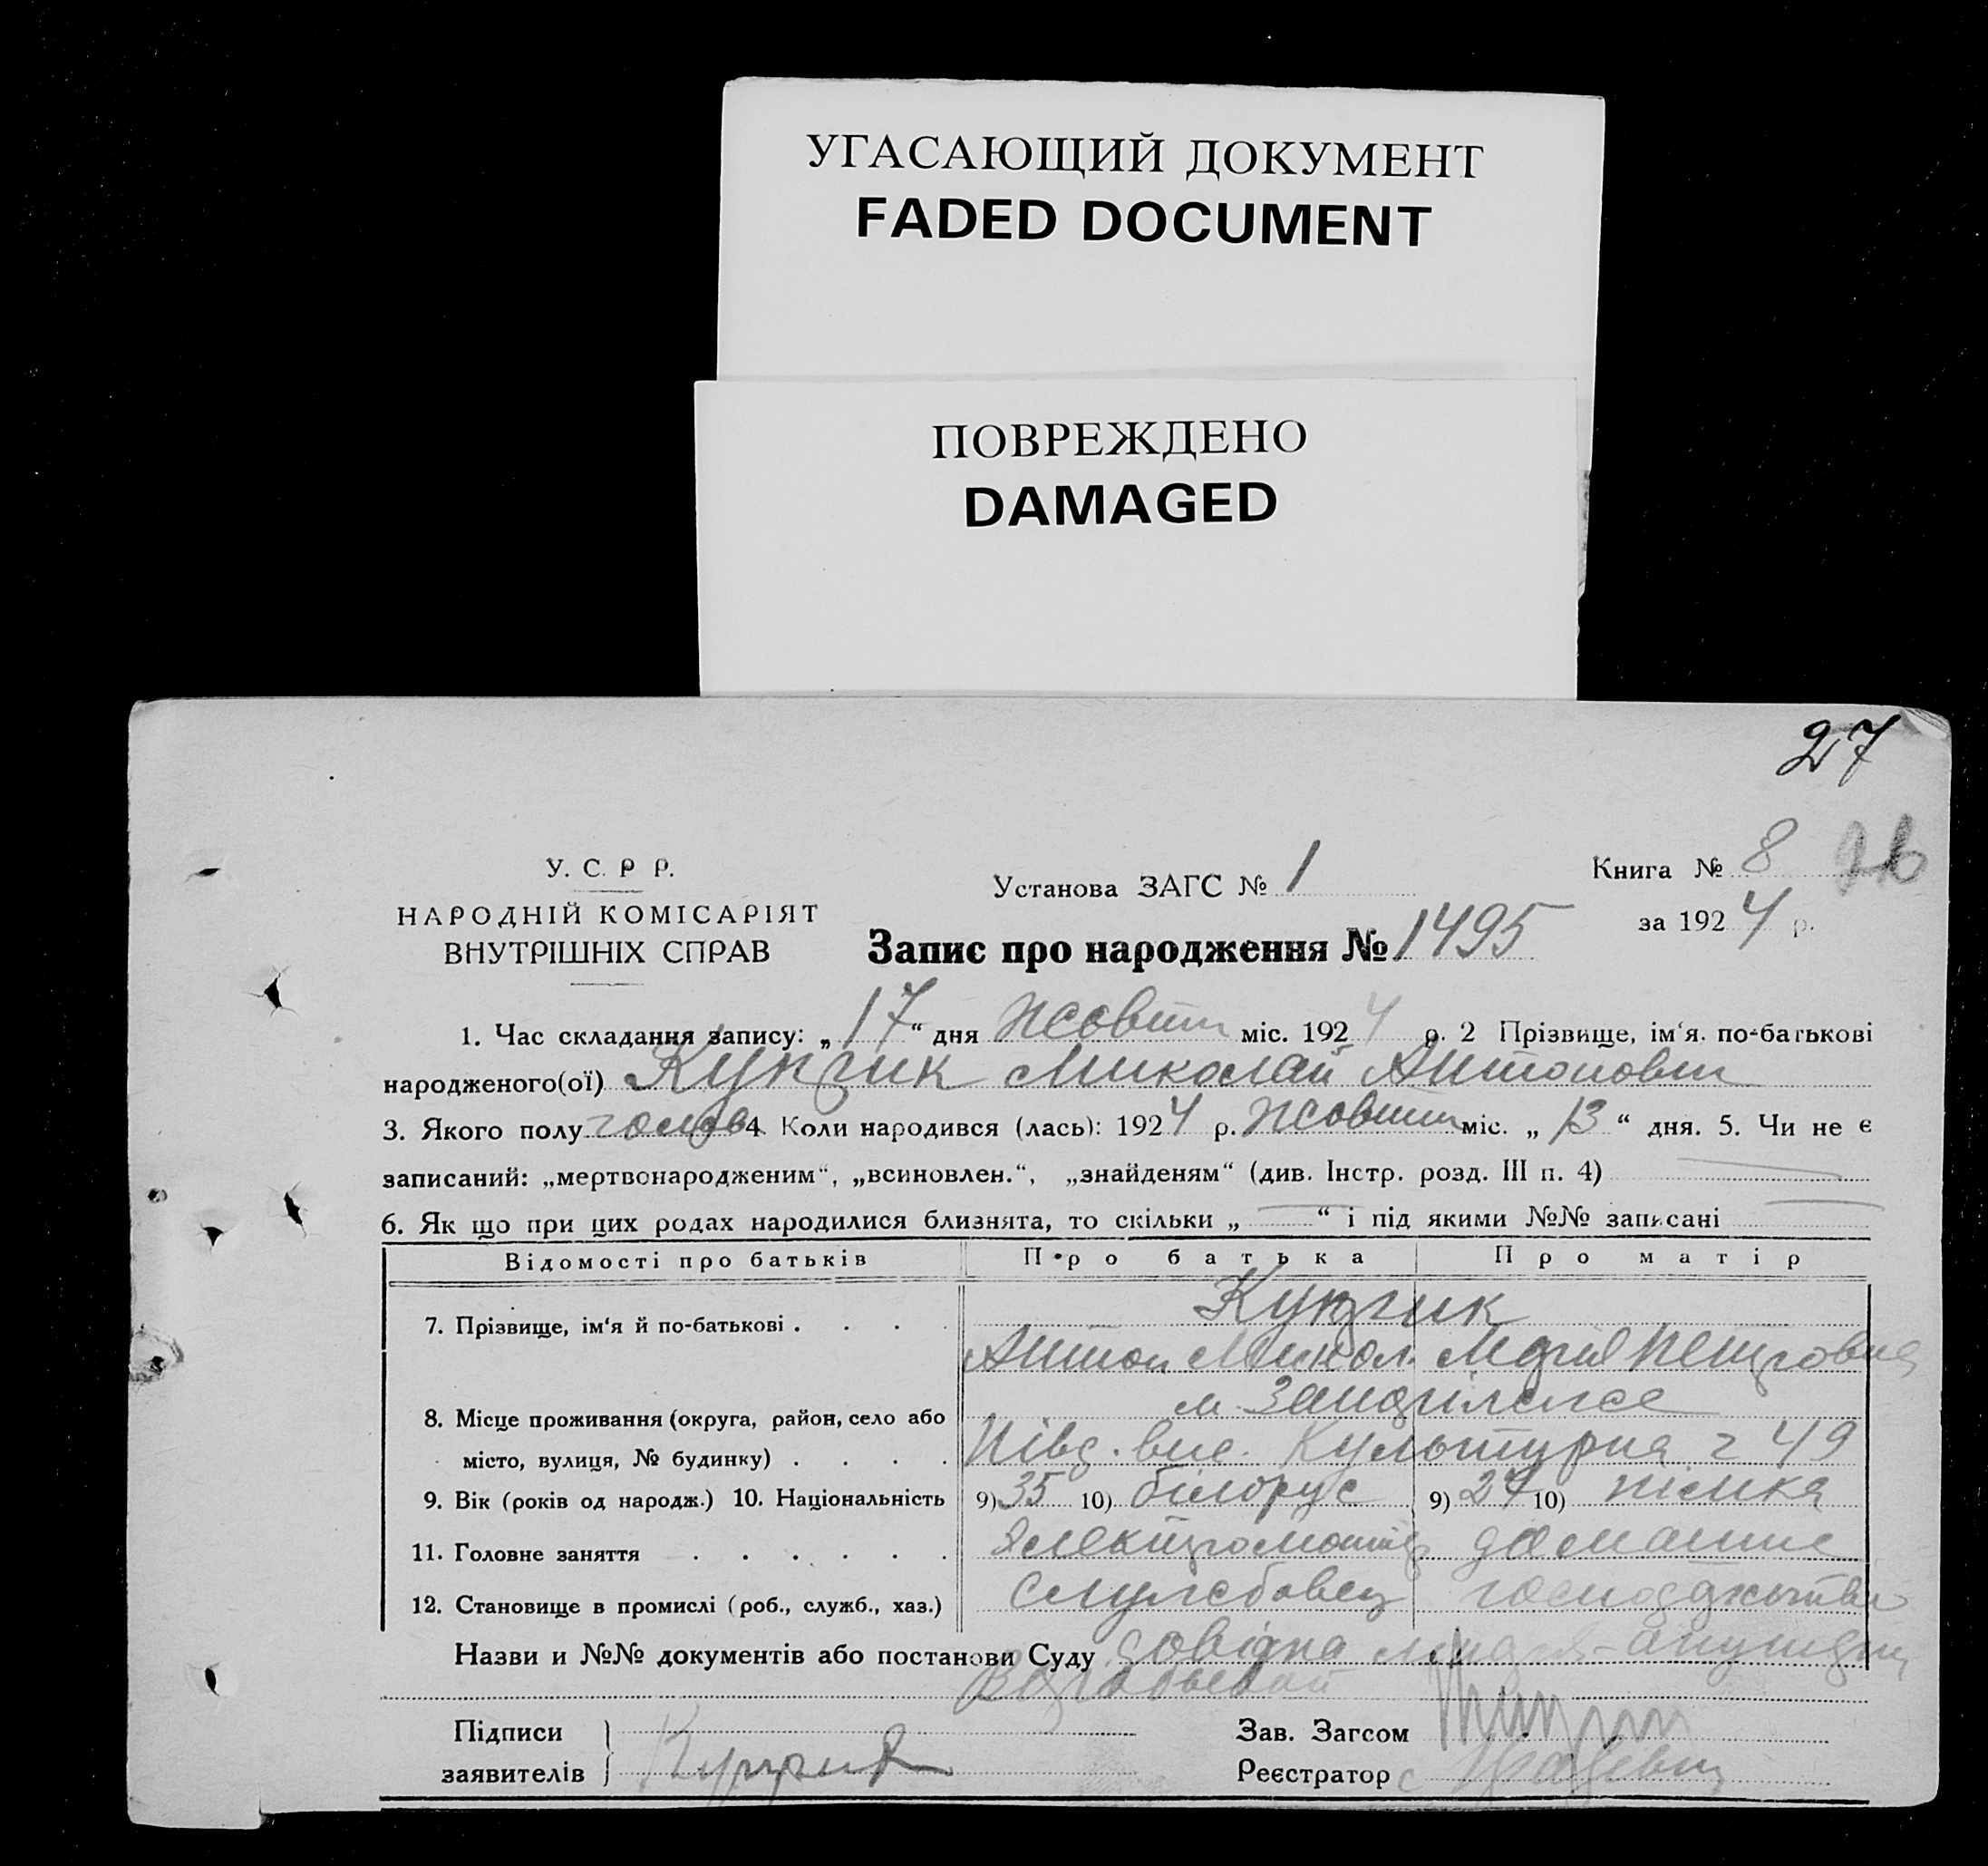 УГАСАЮЩИЙ ДОКУМЕНТ
FADED DOCUMENT
ПОВРЕЖДЕНО
DAMAGED
27
У. С. Р Р.
НАРОДНІЙ КОМІСАРІЯТ
ВНУТРІШНІХ СПРАВ
Установа ЗАГС № 1
Книга № 8 26
за 1924 р.
Запис про народження № 1495
1. Час складання запису: „17“ дня Жовтн міс. 1924 р. 2 Прізвище, ім'я. по-батькові
народженого(ої) Миколай Антонович
3. Якого полу 4. Коли народився (лась): 1924 р. Жовтн міс. „13“ дня. 5. Чи не є
записаний: „мертвонародженим“, „всиновлен.“, „знайденям“ (див. Інстр. розд. III п. 4)
6. Як що при цих родах народилися близнята, то скільки „ “ і під якими №№ записані
Відомості про батьків Про батька Про матір
7. Прізвище, ім'я й по-батькові . . . .
Антон Микол. Марія Петровна
8. Місце проживання (округа, район, село або
місто, вулиця, № будинку) . . . . Півд. вул. Культурна 49
9. Вік (років од народж.) 10. Національність 9) 35 10) білорус 9) 27 10) німка
11. Головне заняття . . . . . . Электромонт домашнє
12. Становище в промислі (роб., служб., хаз.) Службовец господарство
Назви и №№ документів або постанови Суду довідка
Підписи
заявителів
Зав. Загсом
Реєстратор